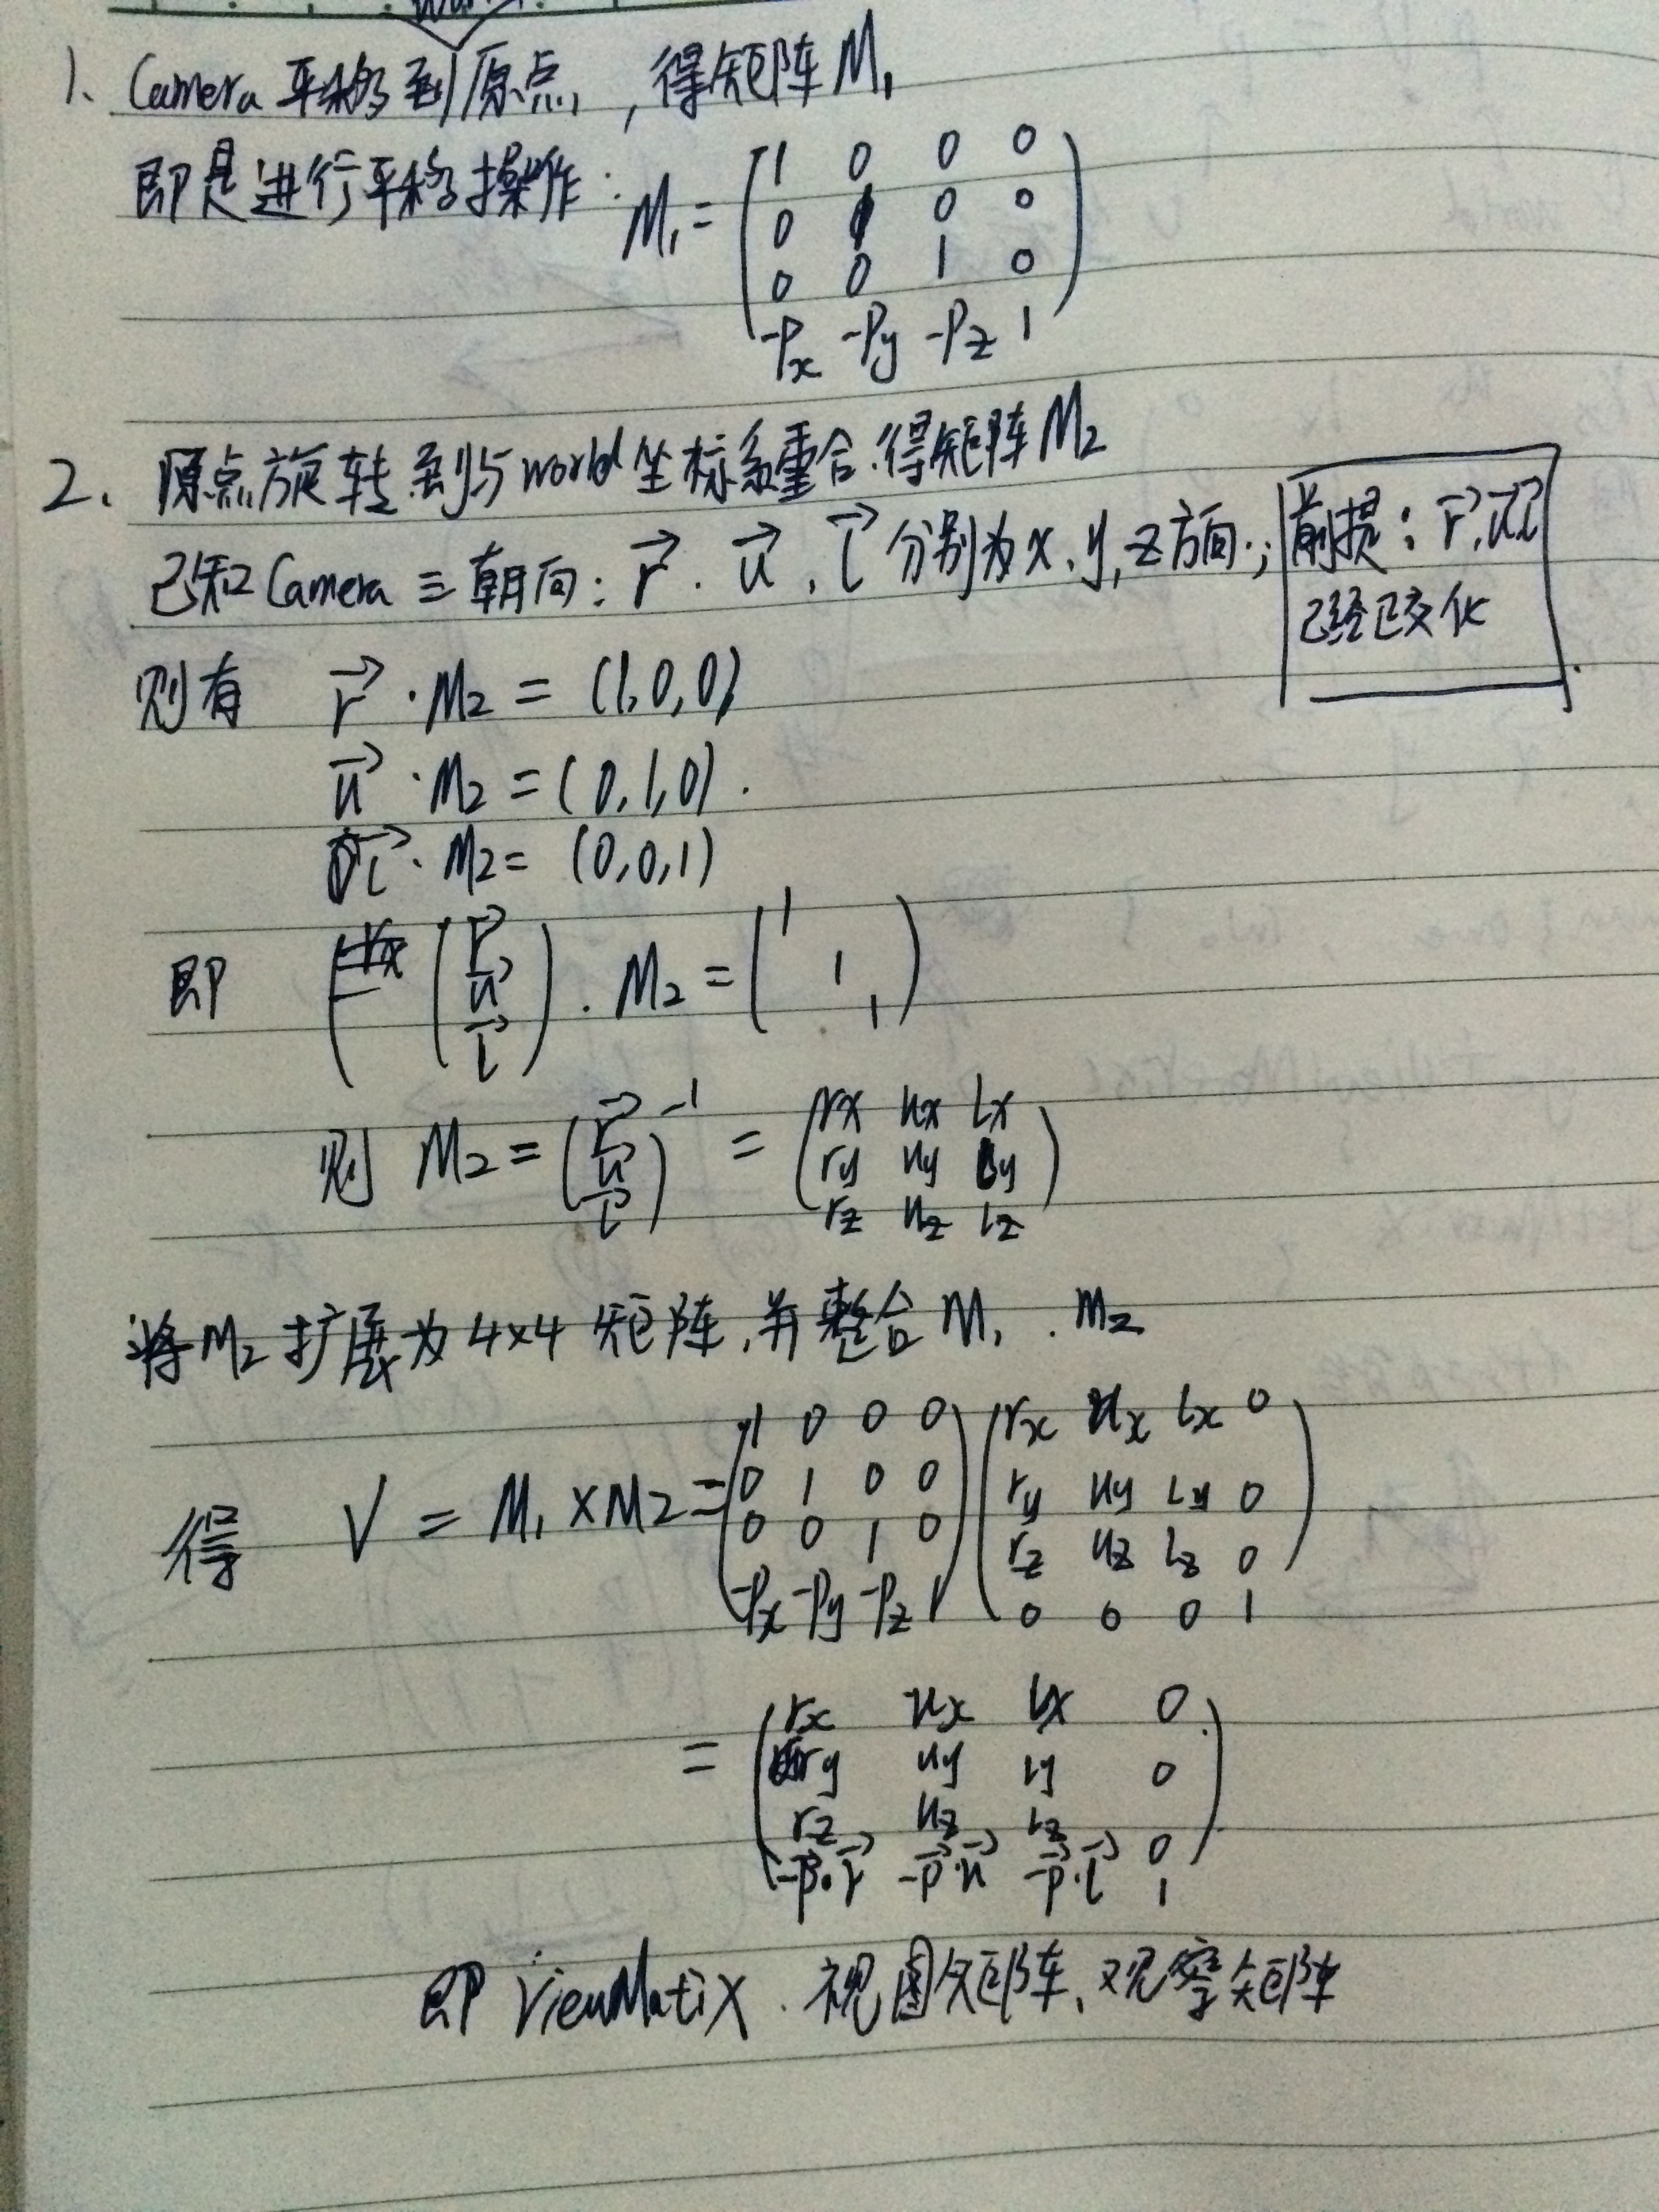 1、Camera平移到原点,得矩阵M₁
即是进行平移操作:
M₁=
1 0 0 0
0 1 0 0
0 0 1 0
-Px -Py -Pz 1
2、原点旋转到与world坐标系重合.得矩阵M₂
已知Camera三朝向: r⃗. u⃗. l⃗ 分别为x、y,z方向.;
前提: r⃗,u⃗,l⃗
已经正交化
则有 r⃗·M₂=(1,0,0)
u⃗·M₂=(0,1,0).
l⃗·M₂=(0,0,1)
即 (r⃗ u⃗ l⃗).M₂=(1 1 1)
则 M₂=(r⃗ u⃗ l⃗)⁻¹=
rx ux Lx
ry uy Ly
rz uz Lz
将M₂扩展为4×4矩阵,并整合M₁.M₂
得 V=M₁×M₂=
1 0 0 0 rx ux Lx 0
0 1 0 0 ry uy Ly 0
0 0 1 0 rz uz Lz 0
-Px -Py -Pz 1 0 0 0 1
=
rx ux Lx 0
ry uy Ly 0
rz uz Lz 0
-P⃗·r⃗ -P⃗·u⃗ -P⃗·l⃗ 1
即ViewMatix.视图矩阵、观察矩阵